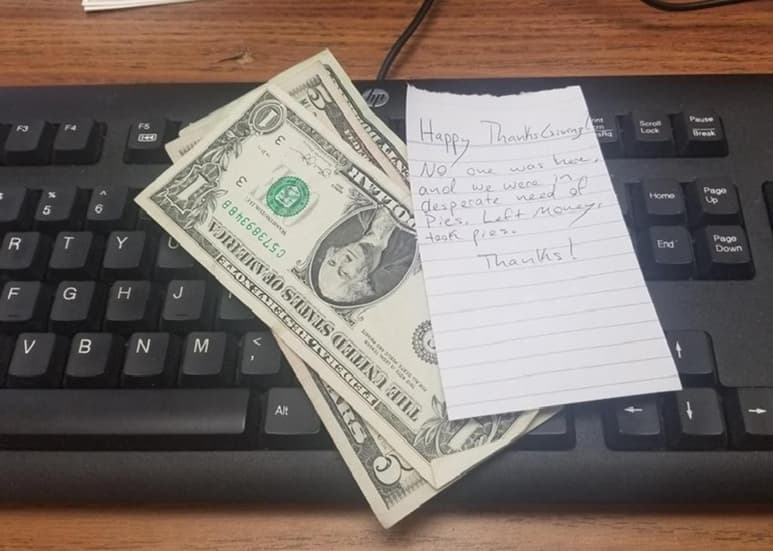 F3 F4 F5
hp
Scroll Lock
Pause Break
5 6
Home
Page Up
R T Y
End
Page Down
F G H J
V B N M < ,
Alt
1
3
3
C57389348B
DOLLAR
THE UNITED STATES OF AMERICA
FEDERAL RESERVE NOTE
5
5
Happy ThanksGiving!
No one was here,
and we were in
desperate need of
Pies. Left money,
took pies.
Thanks!